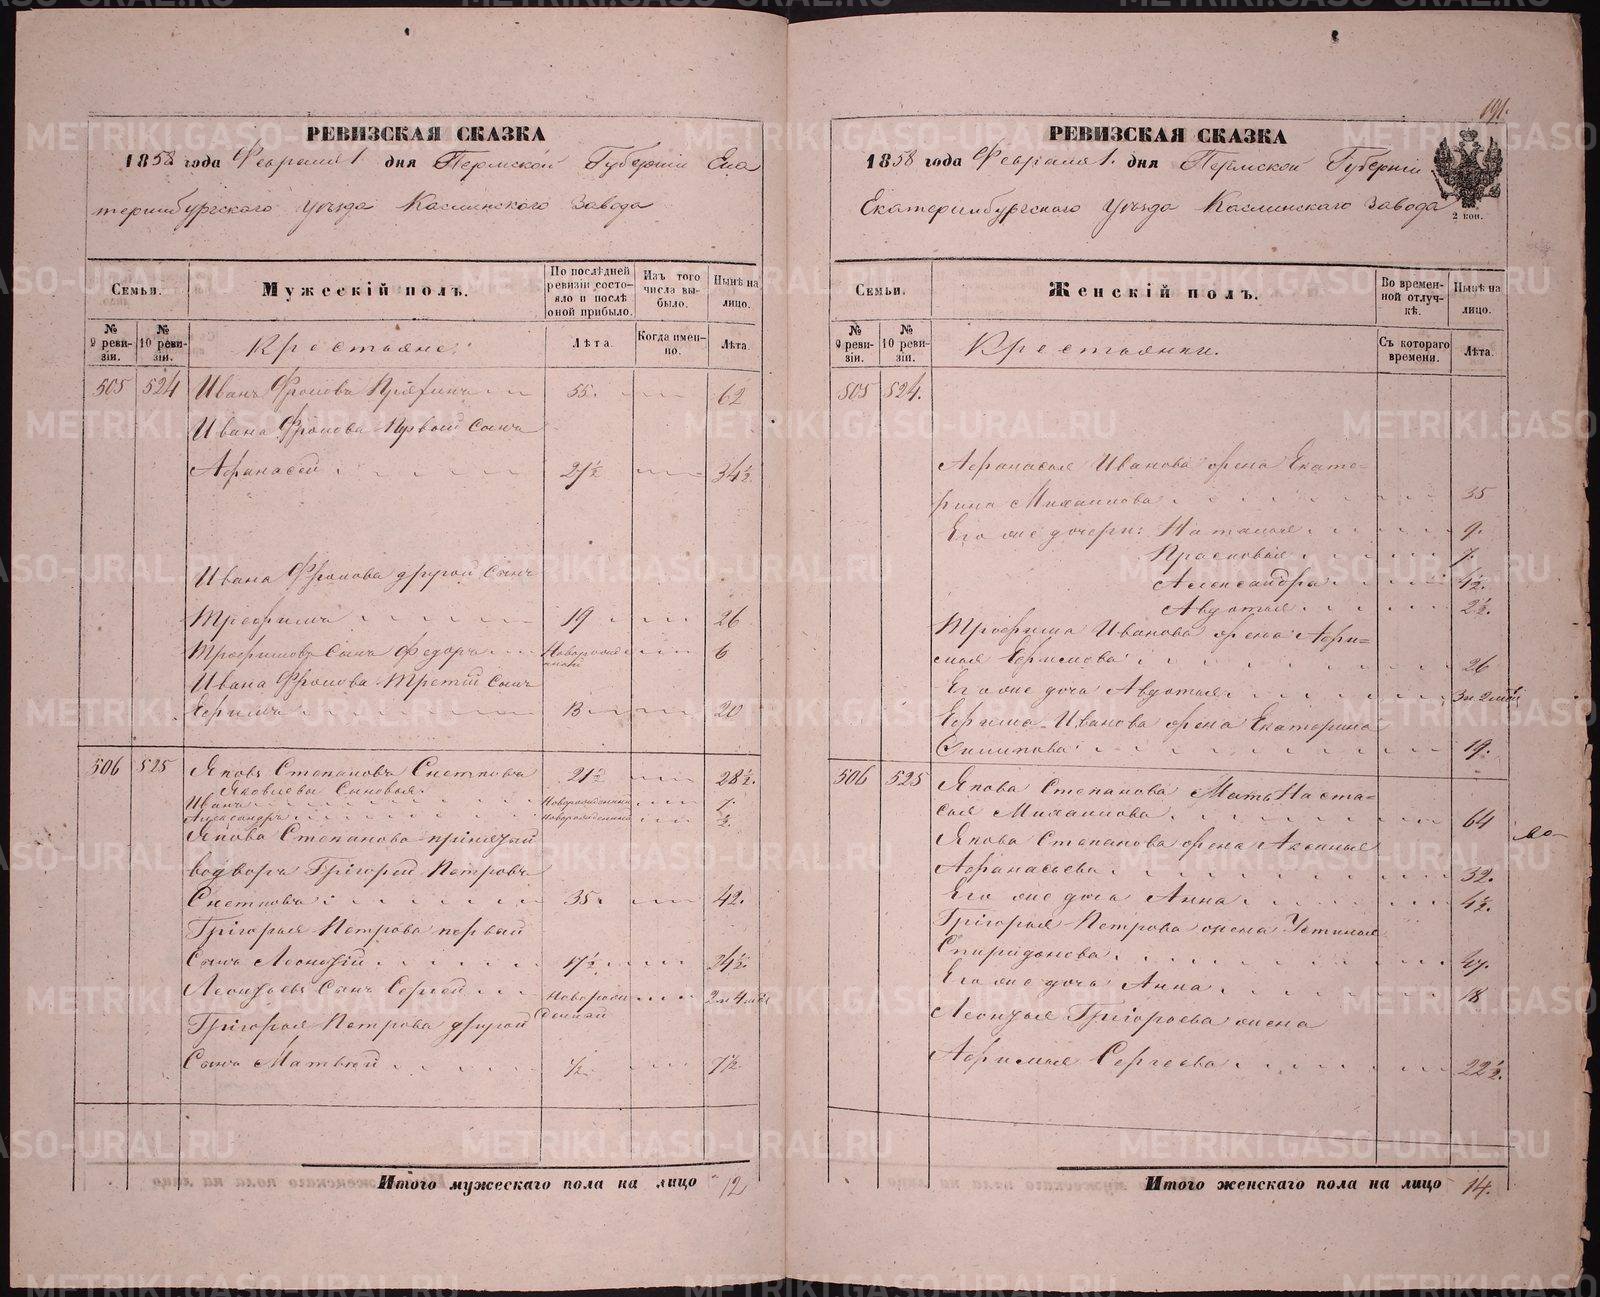 РЕВИЗСКАЯ СКАЗКА
1858 года Февраля 1 дня Пермской Губерніи Ека
теринбургскаго уѣзда Каслинскаго Завода
Семьи.
Мужескій полъ.
По послѣдней ревизіи состояло и послѣ оной прибыло.
Изъ того числа выбыло.
Нынѣ на лицо.
№ 9 ревизіи.
№ 10 ревизіи.
Крестьяне:
Лѣта.
Когда именно.
Лѣта.
505 524 Иванъ Фроловъ 55. 62
Ивана Фролова Первый сынъ
Афанасей 27½ 34½
Ивана Фролова другой сынъ
Трофимъ 19 26
Трофимовъ сынъ Федоръ Новорожденный 6
Ивана Фролова Третій сынъ
Ефримъ 13 20
506 525 Яковъ Степановъ Снетковъ 21½ 28½.
Яковлевы Сыновья:
Иванъ Новорожденный 7.
Александръ Новорожденный ½
Якова Степанова принятый
водворъ Григорій Петровъ
Снетковъ 35. 42.
Григорья Петрова первый
Сынъ Леонтій 17½ 24½.
Леонтьевъ Сынъ Сергей Новорожденный 2 м
Григорья Петрова другой
Сынъ Матвей ½ 7½
Итого мужескаго пола на лицо 12
191.
РЕВИЗСКАЯ СКАЗКА
1858 года Февраля 1. дня Пермской Губерніи
Екатеринбургскаго уѣзда Каслинскаго Завода
2 коп.
Семьи.
Женскій полъ.
Во временной отлучкѣ.
Нынѣ на лицо.
№ 9 ревизіи.
№ 10 ревизіи.
Крестьянки.
Съ котораго времени.
Лѣта.
505 524.
Афанасья Иванова жена Екате-
рина Михаилова 35
Его же дочери: Наталья 9.
Прасковья 7.
Александра 4½.
Авдотья 2½.
Трофима Иванова жена Афи-
мья Ефимова 26
Его же дочь Авдотья 3 н 2 мѣс
Ефима Иванова жена Екатерина
Филипова 19.
506 525 Якова Степанова Мать Наста-
сья Михаилова 64
Якова Степанова жена Аксинья
Афанасьева 32.
Его же дочь Анна 4½.
Григорья Петрова жена Устинья
Спиридонова 47.
Его же дочь Анна 18
Леонтья Григорьева жена
Афимья Сергеева 22½.
Итого женскаго пола на лицо 14.
METRIKI.GASO-URAL.RU